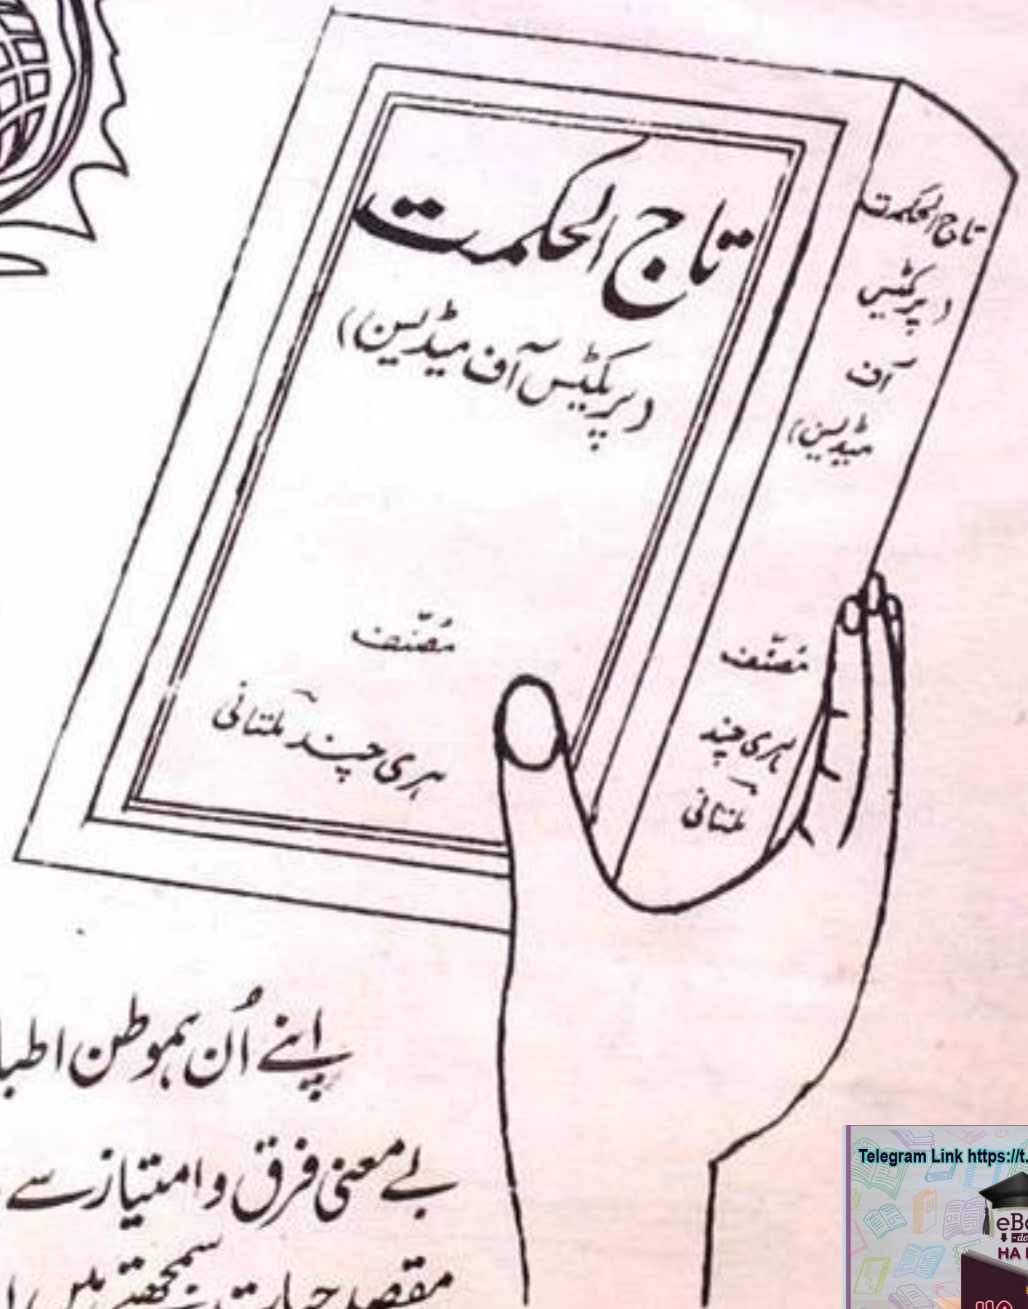 تاج الحکمت
(پریکٹس آف میڈیسن)
مُصنّف
ہری چند ملتانی
تاج الحکمت
(پریکٹس
آف
میڈیسن)
مُصنّف
ہری چند
ملتانی
اپنے اُن ہموطن اطبا
بے معنی فرق و امتیاز سے
مقصد حیات سمجھتے ہیں
Telegram Link https://t.